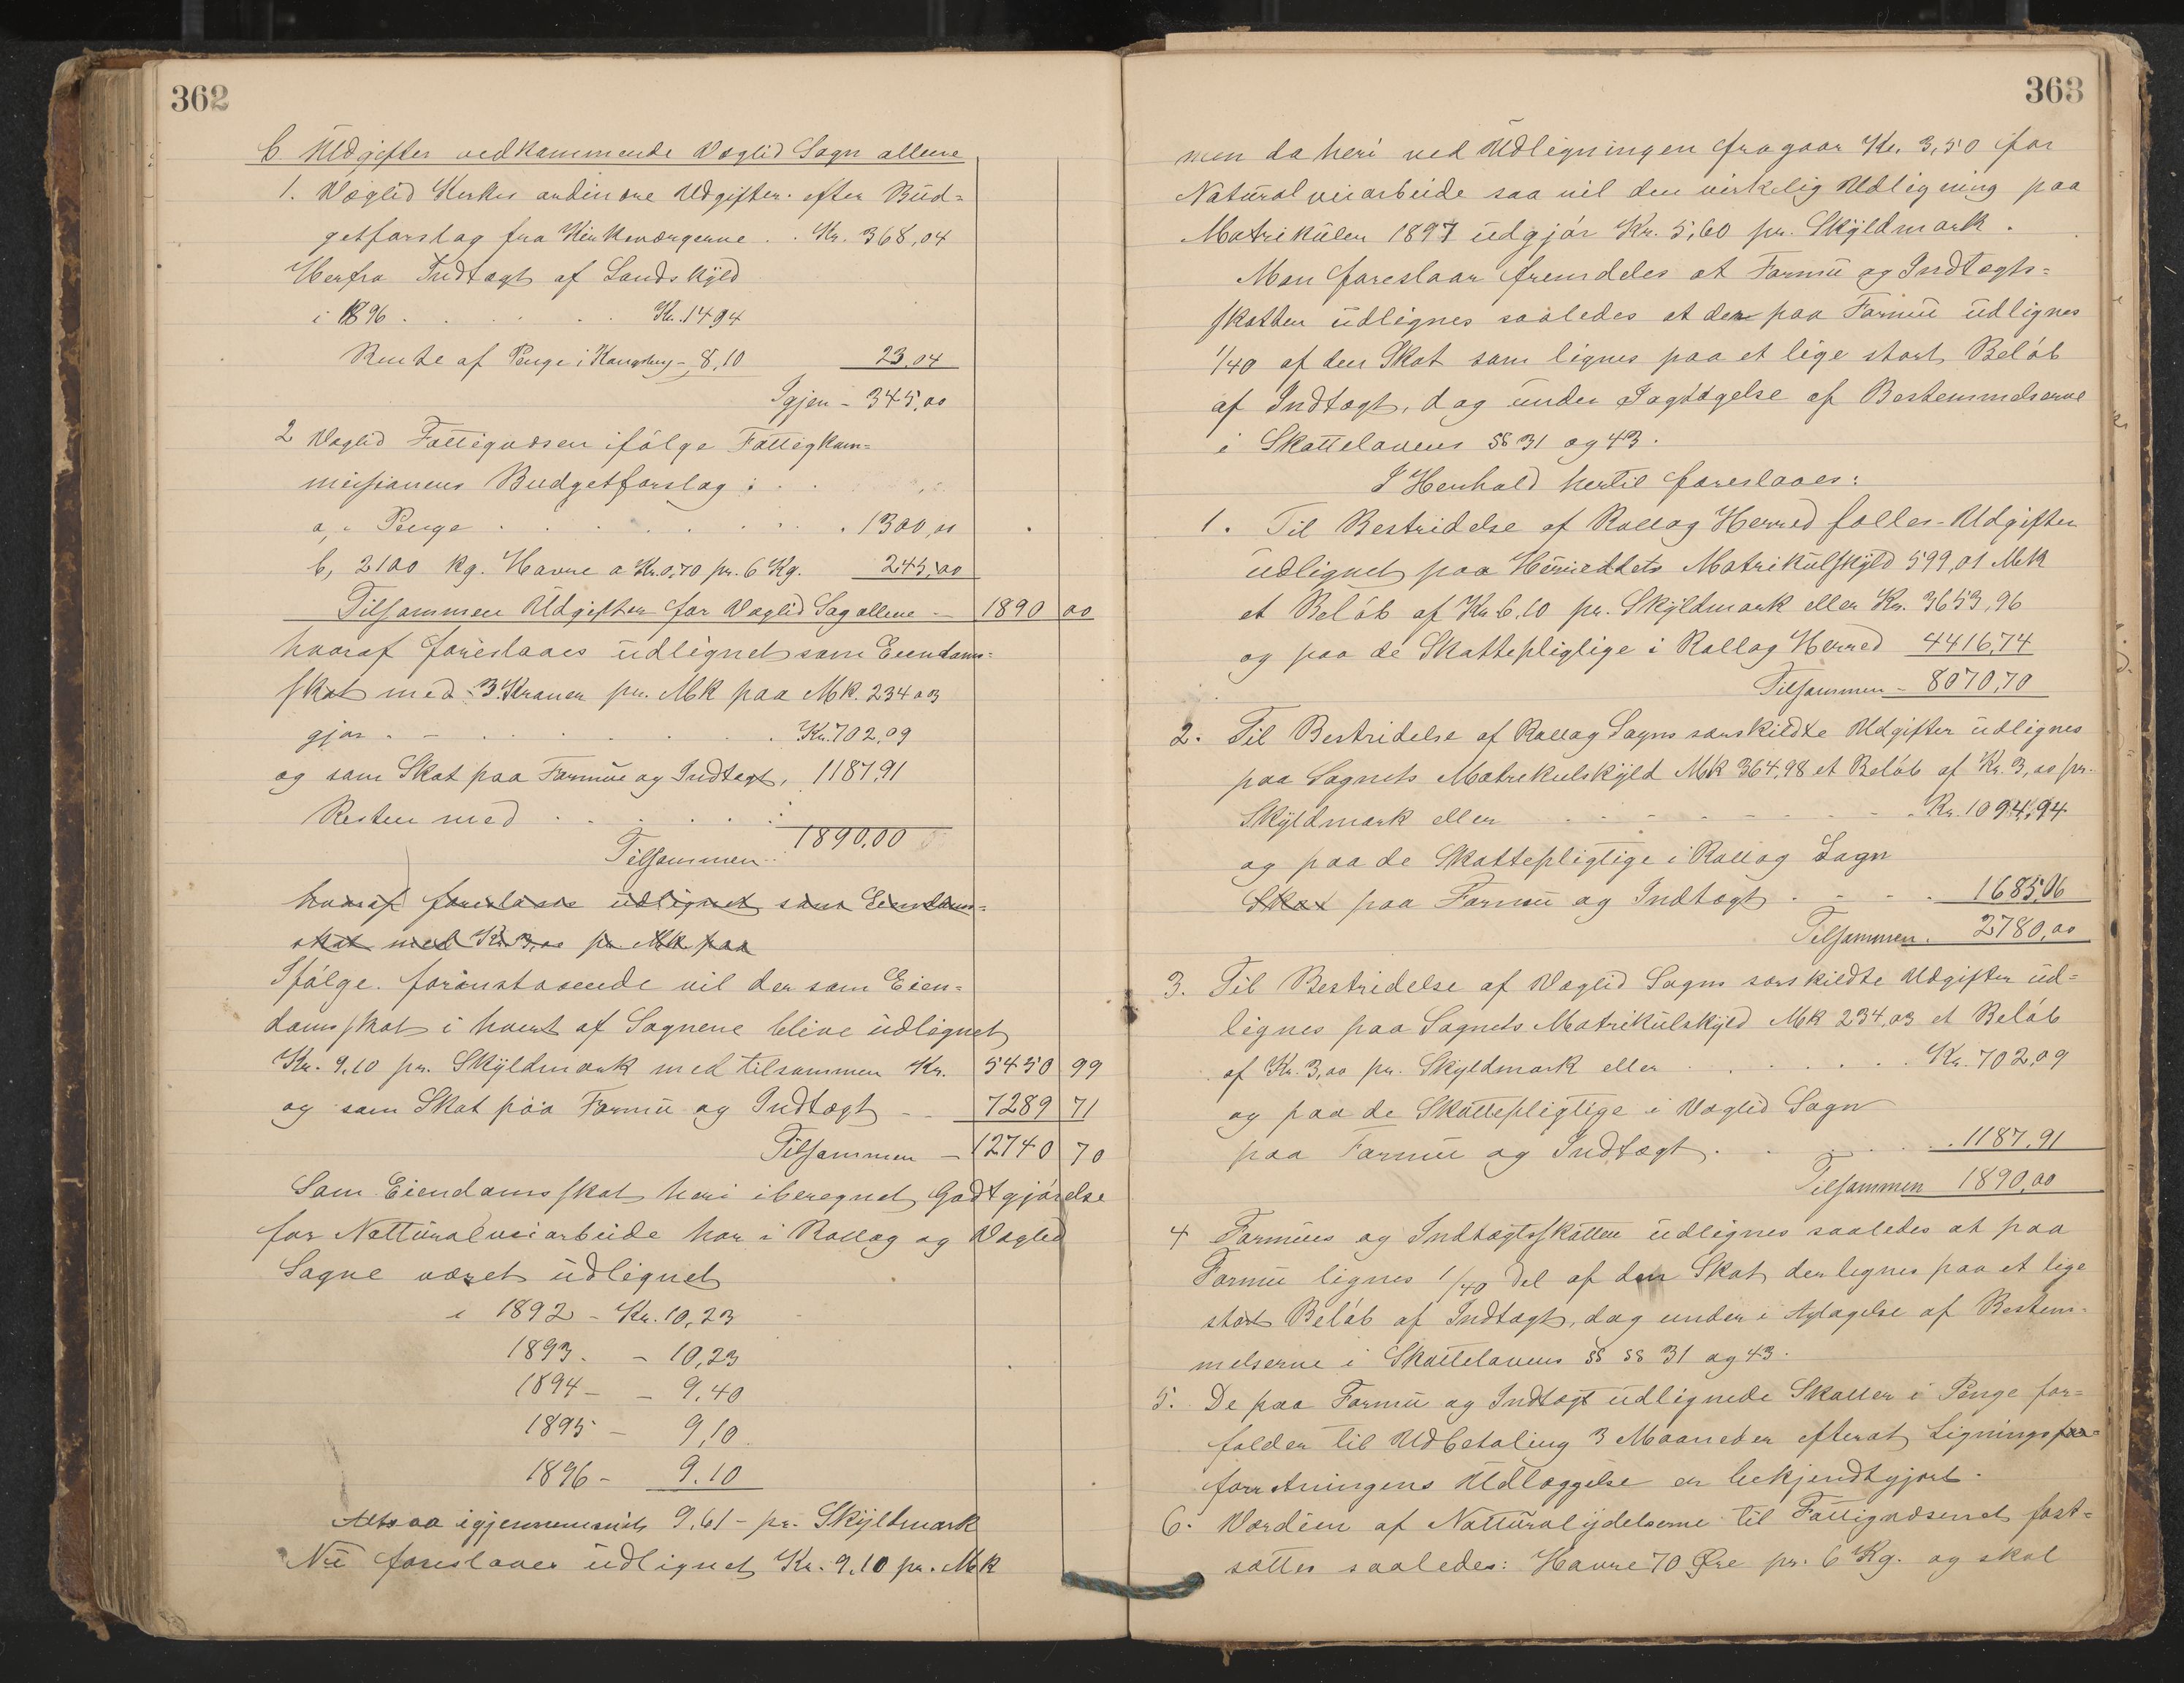 362
C. Udgifter vedkommende Væglid Sogn allene
1. Væglid Kirkes ordinære Udgifter efter Bud=
getforslag fra Kirkeværgerne . . Kr. 368,04
Herfra Indtægt af Landskyld
i 1896 . . . . . Kr. 1494
Rente af Penge i Kongsberg - 8,10 23,04
Igjen - 345,00
2 Væglid Fattigvæsen ifølge Fattigkom=
missionens Budgetforslag :
a, i Penge . . . . . . . . 1300,00
b, 2100 kg. Havre a Kr. 0,70 pr. 6 Kg. 245,00
Tilsammen Udgifter for Væglid Sog allene - 1890 00
hvoraf foreslaaes udlignet som Eiendoms=
skat med 3 Kroner pr. Mk paa Mk. 234 03
gjør . - . . . . . . Kr. 702,09
og som Skat paa Formue og Indtægt, 1187,91
Resten med . . . . . .
Tilsammen 1890,00
hvoraf foreslaaes udlignet som Eiendoms=
skat med Kr. 3,00 pr Mk paa
Ifølge foranstaaende vil der som Eien=
domsskat i hvert af Sognene blive udlignet
Kr. 9,10 pr. Skyldmark med tilsammen Kr. 5450 99
og som Skat paa Formue og Indtægt - - 7289 71
Tilsammen - 12740 70
Som Eiendomsskat heri iberegnet Godtgjørelse
for Natturalveiarbeide har i Rollag og Væglid
Sogne været udlignet
i 1892 - Kr. 10,23
1893. - 10,23
1894 - - 9,40
1895 - 9,10
1896 - 9.10
Altsaa igjennemsnit 9,61 - pr. Skyldmark
Nu foreslaaes udlignet Kr. 9,10 pr. Mk
363
men da heri ved Udligningen fragaar Kr. 3,50 for
Naturalveiarbeide saa vil den virkelig Udligning paa
Matrikulen 1897 udgjør Kr. 5,60 pr. Skyldmark.
Man foreslaar fremdeles at Formu og Indtægts=
skatten udlignes saaledes at der paa Formue udlignes
1/40 af den Skat som lignes paa et lige stort Beløb
af Indtægt, dog under Iagtagelse af Bestemmelserne
i Skattelovens §§ 31 og 43.
I Henhold hertil foreslaaes:
1. Til Bestridelse af Rollag Herred fælles-Udgifter
udlignes paa Herreddets Matrikulskyld 599,01 Mk
et Beløb af Kr 6,10 pr. Skyldmark eller Kr. 3653,96
og paa de Skattepligtige i Rollag Herred 4416,74
Tilsammen - 8070,70
2. Til Bestridelse af Rollag Sogns særskildte Udgifter udlignes
paa Sognets Matrekulskyld Mk 364,98 et Beløb af Kr. 3,00 pr.
Skyldmark eller . . . . . . . . Kr. 1094,94
og paa de Skattepligtige i Rollag Sogn
Skat paa Formu og Indtægt . . . . 1685,06
Tilsammen. 2780,00
3. Til Bestridelse af Væglid Sogns særskildte Udgifter ud=
lignes paa Sognets Matrikulskyld Mk 234,03 et Beløb
af Kr. 3,00 pr. Skyldmark eller . . . . . . Kr. 702,09
og paa de Skattepligtige i Væglid Sogn
paa Formue og Indtægt . . . . . 1187,91
Tilsammen 1890,00
4 Formues og Indtægtsskatten udlignes saaledes at paa
Formue lignes 1/40 del af den Skat, der lignes paa et lige
stort Beløb af Indtægt, dog under i Agtagelse af Bestem=
melserne i Skattelovens §§ §§ 31 og 43.
5. De paa Formu og Indtægt udlignede Skatter i Penge for=
falder til Udbetaling 3 Maaneder efterat Lignings
forretningens Udlæggelse er bekjendtgjort.
6. Værdien af Natturalydelserne til Fattigvæsenet fast=
sættes saaledes: Havre 70 Øre pr. 6 Kg. og skal